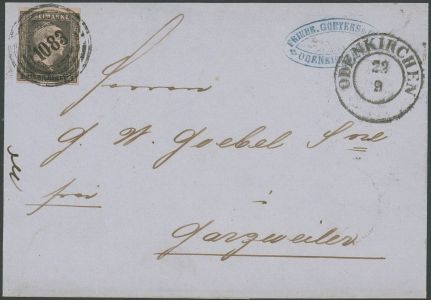 FREIMARKE
1083
FRIEDR. GOETERS
ODENKIRCHEN
ODENKIRCHEN
22
9
Herren
G. W. Goebel Sne
frei
Garzweiler